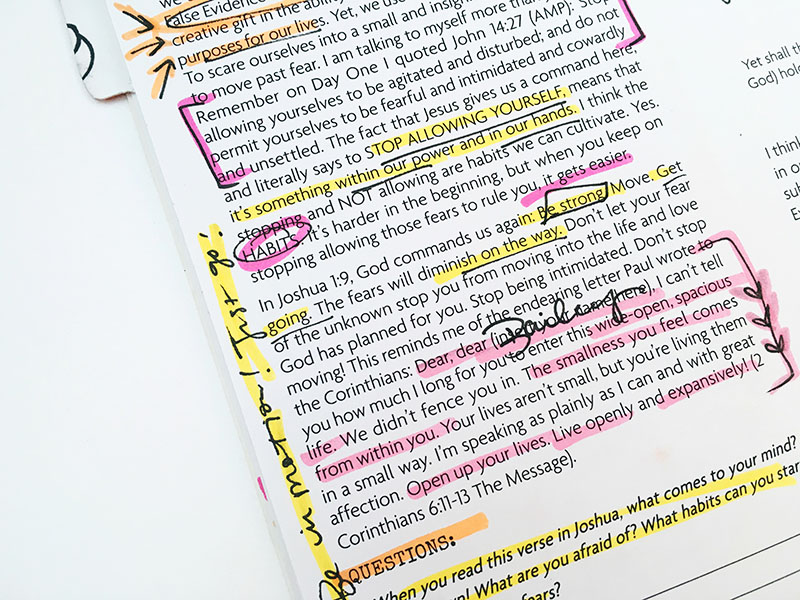 False Evidence
creative gift in the ability
purposes for our lives. Yet, we use
To scare ourselves into a small and
to move past fear. I am talking to myself more than
Remember on Day One I quoted John 14:27 (AMP): Stop
allowing yourselves to be agitated and disturbed; and do not
permit yourselves to be fearful and intimidated and cowardly
and unsettled. The fact that Jesus gives us a command here,
and literally says to STOP ALLOWING YOURSELF, means that
it's something within our power and in our hands. I think the
stopping and NOT allowing are habits we can cultivate. Yes.
HABITS. It's harder in the beginning, but when you keep on
stopping allowing those fears to rule you, it gets easier.
In Joshua 1:9, God commands us again: Be strong. Move. Get
going. The fears will diminish on the way. Don't let your fear
of the unknown stop you from moving into the life and love
God has planned for you. Stop being intimidated. Don't stop
moving! This reminds me of the endearing letter Paul wrote to
the Corinthians: Dear, dear (insert name here), I can't tell
you how much I long for you to enter this wide-open, spacious
life. We didn't fence you in. The smallness you feel comes
from within you. Your lives aren't small, but you're living them
in a small way. I'm speaking as plainly as I can and with great
affection. Open up your lives. Live openly and expansively! (2
Corinthians 6:11-13 The Message).
QUESTIONS:
When you read this verse in Joshua, what comes to your mind?
What are you afraid of? What habits can you
fears?
Yet shall
God) hol
I think
in